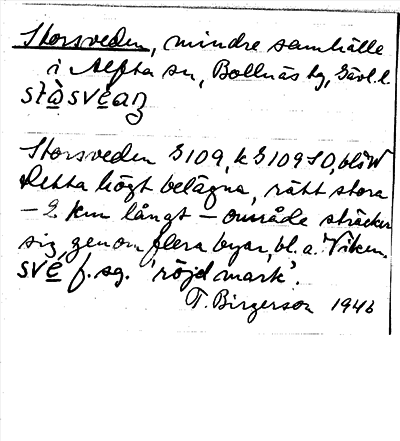 Storsveden, mindre samhälle
i Alfta sn, Bollnäs tg, Gävl. l.
Storsveden 3109, k 3109 SO, blöW
Detta högt belägna, rätt stora
– 2 km långt – område sträcker
sig genom flera byar, bl. a. Viken.
svẹ f. sg. 'röjd mark'.
T. Birgerson 1946